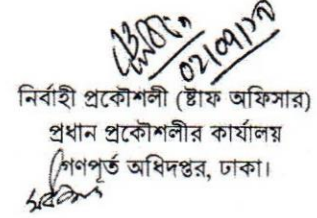 ০২/০৭/১৭
নির্বাহী প্রকৌশলী (ষ্টাফ অফিসার)
প্রধান প্রকৌশলীর কার্যালয়
গণপূর্ত অধিদপ্তর, ঢাকা।